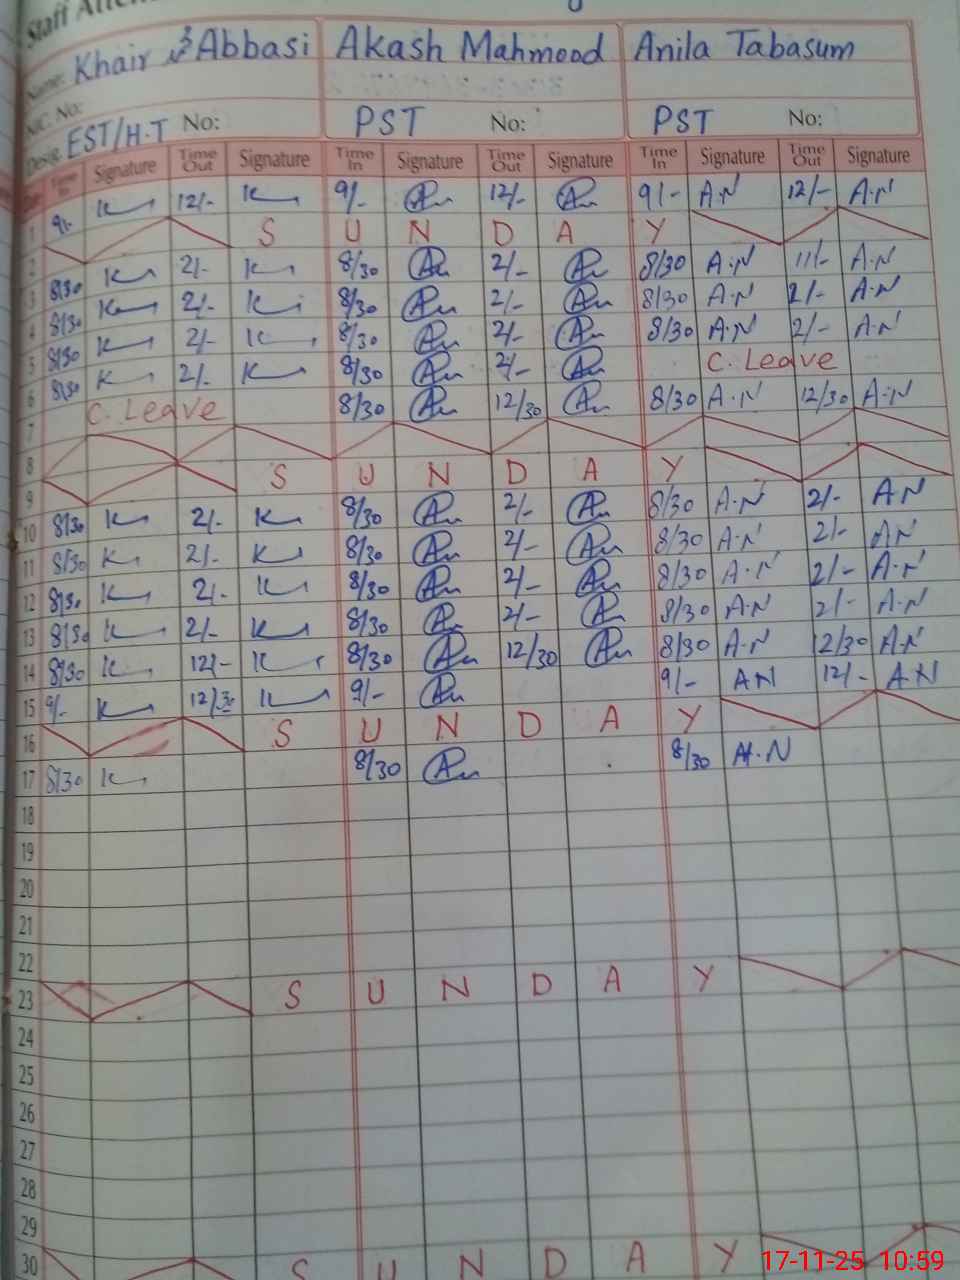 Staff Atten
Name: Khair Abbasi Akash Mahmood Anila Tabasum
NIC. No:
Desig. EST/H.T No: PST No: PST No:
Time In Signature Time Out Signature Time In Signature Time Out Signature Time In Signature Time Out Signature
1 9/- K 12/- K 9/- 12/- 9/- A.N 12/- A.N
2 S U N D A Y
3 8/30 K 2/- K 8/30 2/- 8/30 A.N 11/- A.N
4 8/30 K 2/- K 8/30 2/- 8/30 A.N 2/- A.N
5 8/30 K 2/- K 8/30 2/- 8/30 A.N 2/- A.N
6 8/30 K 2/- K 8/30 2/- C. Leave
7 C. Leave 8/30 12/30 8/30 A.N 12/30 A.N
8
9 S U N D A Y
10 8/30 K 2/- K 8/30 2/- 8/30 A.N 2/- A.N
11 8/30 K 2/- K 8/30 2/- 8/30 A.N 2/- A.N
12 8/30 K 2/- K 8/30 2/- 8/30 A.N 2/- A.N
13 8/30 K 2/- K 8/30 2/- 8/30 A.N 2/- A.N
14 8/30 K 12/- K 8/30 12/30 8/30 A.N 12/30 A.N
15 9/- K 12/30 K 9/- 9/- AN 12/- AN
16 S U N D A Y
17 8/30 K 8/30 8/30 A.N
18
19
20
21
22
23 S U N D A Y
24
25
26
27
28
29
30 S U N D A Y
17-11-25 10:59